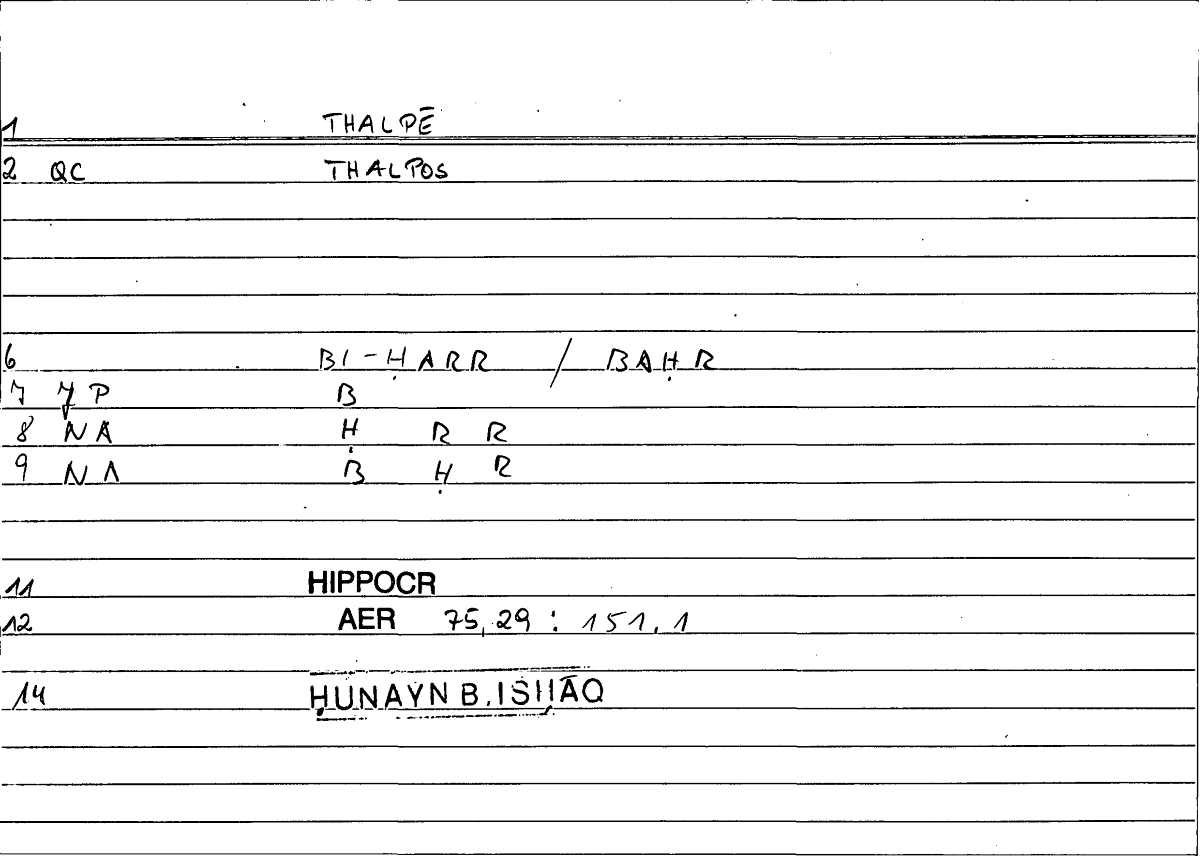 1 THALPĒ
2 QC THALPOS
6 BI-ḤARR / BAḤR
7 JP B
8 NA Ḥ R R
9 NA B Ḥ R
11 HIPPOCR
12 AER 75,29 : 151.1
14 ḤUNAYN B.ISḤĀQ